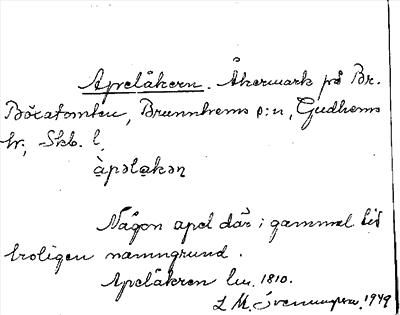 Apelåkern. Åkermark på Br.
Backatomten, Brunnhems s:n, Gudhems
hr., Skb. l.
àpəlakəṇ
Någon apel där i gammal tid
troligen namngrund.
Apelåkren lm. 1810.
L M. Svenungsson. 1949